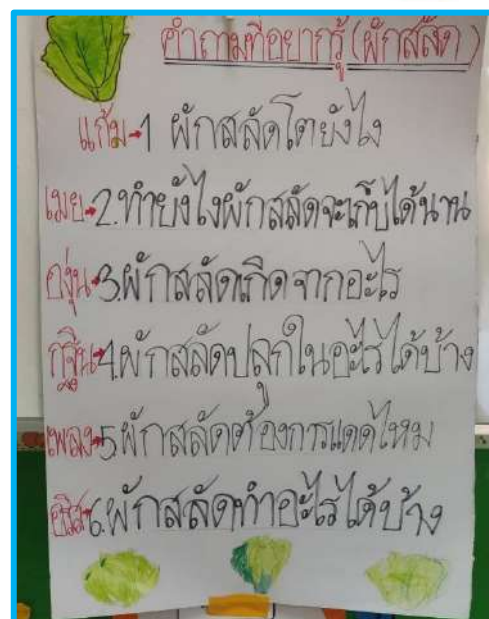 คำถามที่อยากรู้ (ผักสลัด)
แก้ม→1 ผักสลัดโตยังไง
เมย→2.ทำยังไงผักสลัดจะเก็บได้นาน
องุ่น→3.ผักสลัดเกิดจากอะไร
→4.ผักสลัดปลูกในอะไรได้บ้าง
เพลง→5ผักสลัดต้องการแดดไหม
→6.ผักสลัดทำอะไรได้บ้าง